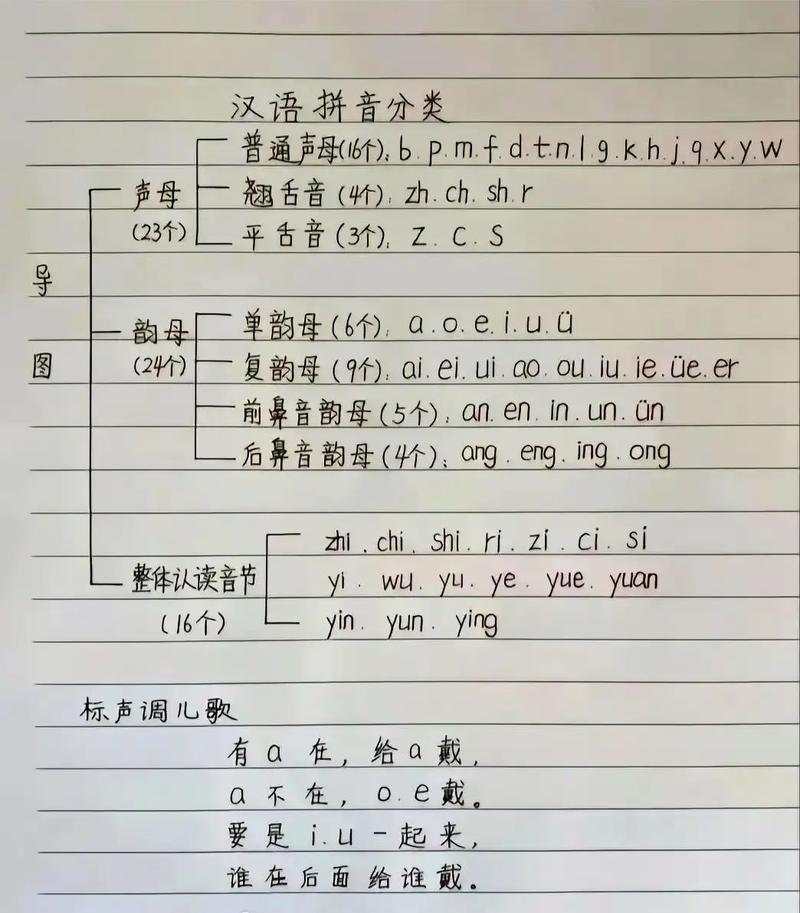 汉语拼音分类
普通声母(16个): b.p.m.f.d.t.n.l.g.k.h.j.q.x.y.w
声母
翘舌音(4个): zh.ch.sh.r
(23个)
平舌音(3个): z.c.s
导
单韵母(6个): a.o.e.i.u.ü
韵母
图
(24个)
复韵母(9个): ai.ei.ui.ao.ou.iu.ie.üe.er
前鼻音韵母(5个): an.en.in.un.ün
后鼻音韵母(4个): ang.eng.ing.ong
zhi.chi.shi.ri.zi.ci.si
整体认读音节
yi.wu.yu.ye.yue.yuan
(16个)
yin.yun.ying
标声调儿歌
有a在,给a戴,
a不在,o.e戴。
要是i.u一起来,
谁在后面给谁戴。